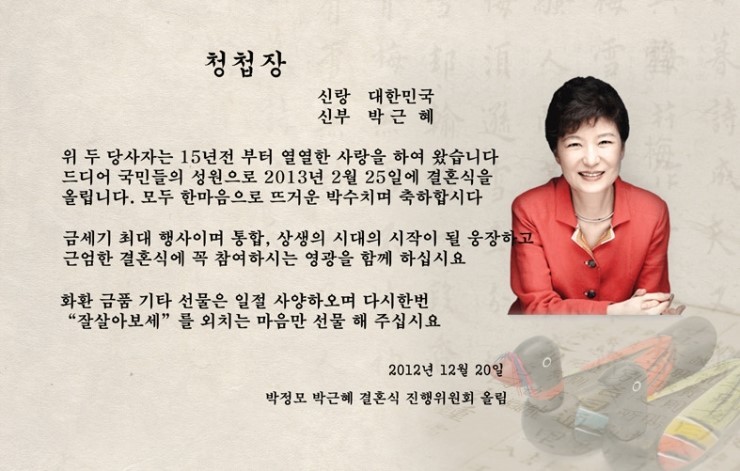 청첩장
신랑 대한민국
신부 박근혜
위 두 당사자는 15년전 부터 열열한 사랑을 하여 왔습니다
드디어 국민들의 성원으로 2013년 2월 25일에 결혼식을
올립니다. 모두 한마음으로 뜨거운 박수치며 축하합시다
금세기 최대 행사이며 통합, 상생의 시대의 시작이 될 웅장하고
근엄한 결혼식에 꼭 참여하시는 영광을 함께 하십시요
화환 금품 기타 선물은 일절 사양하오며 다시한번
“잘살아보세” 를 외치는 마음만 선물 해 주십시요
2012년 12월 20일
박정모 박근혜 결혼식 진행위원회 올림